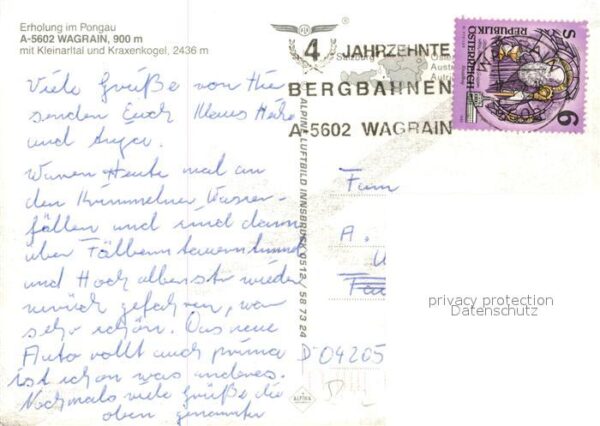 Erholung im Pongau
A-5602 WAGRAIN, 900 m
mit Kleinarltal und Kraxenkogel, 2436 m
Viele Grüße von Hier
senden Euch Klaus Heike
und
Waren Heute mal an
den Krimmelner Wasser-
fällen und sind dann
über Felbertauerntunnel
und Hochalbenstr wieder
zurück gefahren, war
sehr schön. Das neue
Auto rollt auch prima
ist schon was anderes.
Nochmals viele Grüße die
oben genannten
4 JAHRZEHNTE
BERGBAHNEN
A-5602 WAGRAIN
REPUBLIK
ÖSTERREICH
S 6
ALPINE LUFTBILD INNSBRUCK 0512 / 58 73 24
Fam
A.
D-04205
ALPINA
privacy protection
Datenschutz